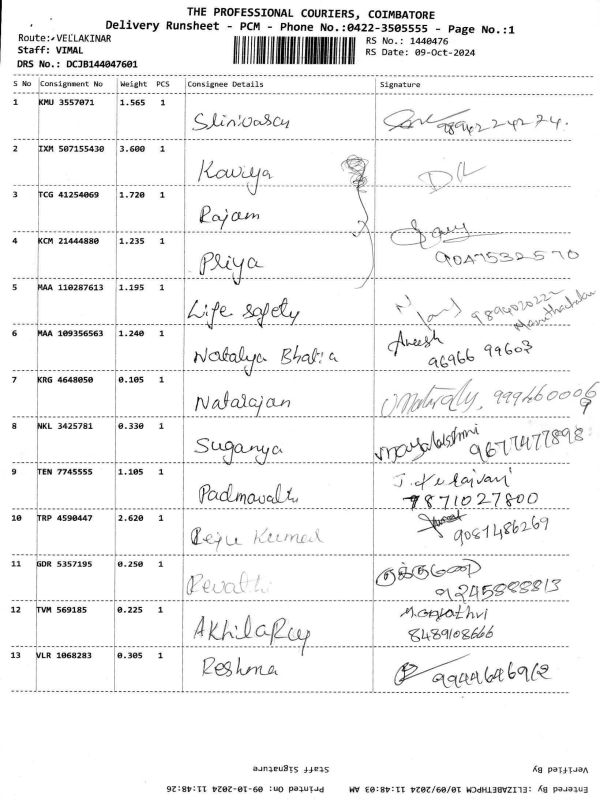 THE PROFESSIONAL COURIERS, COIMBATORE
Delivery Runsheet - PCM - Phone No.:0422-3505555 - Page No.:1
Route: VELLAKINAR
RS No.: 1440476
Staff: VIMAL
RS Date: 09-Oct-2024
DRS No.: DCJB144047601
S No Consignment No Weight PCS Consignee Details Signature
1 KMU 3557071 1.565 1 Srinivasan 9894224224.
2 IXM 507155430 3.600 1 Kaviya
3 TCG 41254069 1.720 1 Rajam
4 KCM 21444880 1.235 1 Priya 9047532570
5 MAA 110287613 1.195 1 Life safety
6 MAA 109356563 1.240 1 Natalya Bhatia Aneesh
96966 99603
7 KRG 4648050 0.105 1 Natarajan
8 NKL 3425781 0.330 1 Suganya 9677477898
9 TEN 7745555 1.105 1 Padmavathi
9871027800
10 TRP 4590447 2.620 1 9087486269
11 GDR 5357195 0.250 1 Revathi
91245888813
12 TVM 569185 0.225 1
8489108666
13 VLR 1068283 0.305 1 Reshma 9944646962
Verified By
Staff Signature
Entered By :ELIZABETHPCM 10/09/2024 11:48:03 AM Printed On: 09-10-2024 11:48:26